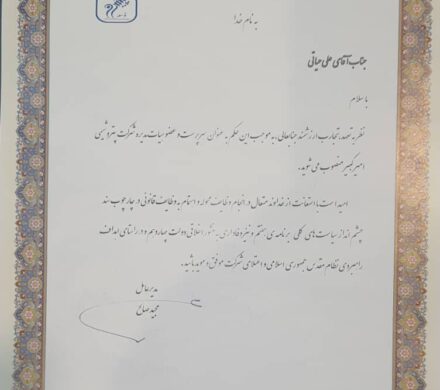 به نام خدا
جناب آقای علی حیاتی
با سلام
نظر به تعهد، تجارب ارزشمند جنابعالی، به موجب این حکم به عنوان سرپرست و عضو هیات مدیره شرکت پتروشیمی
امیرکبیر منصوب می شوید.
امید است با استعانت از خداوند متعال در انجام وظایف محوله و اهتمام به وظایف قانونی در چارچوب سند
چشم انداز سیاست های کلی برنامه های هفتم و نیز وفاداری به منشور اخلاقی دولت چهاردهم و در راستای اهداف
راهبردی نظام مقدس جمهوری اسلامی و اعتلای شرکت موفق و موید باشید.
مدیرعامل
مجید صالح